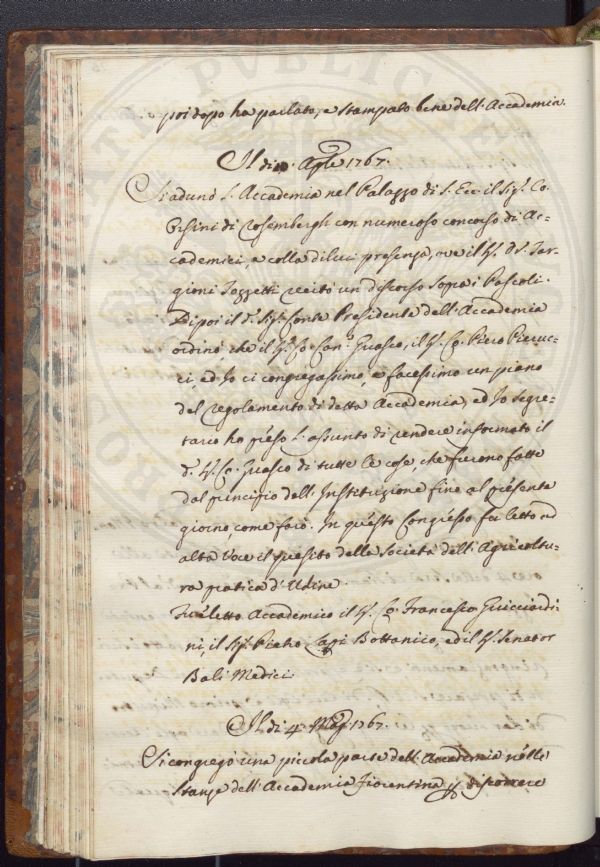 poi dopo ha parlato, e stampato bene dell'Accademia.
Il di Aple 1767.
Si adunò l'Accademia nel Palazzo di S. Ecc. il Sigr. Co.
Orsini di Rosembergh con numeroso concorso di Ac-
cademici, e colla di lui presenza, ove il Sr. Dr. Tar-
gioni Tozzetti recitò un discorso sopra i Pascoli.
Dipoi il do. Sigr. Conte Presidente dell'Accademia
ordinò che il Sr. Co. Cano. Guasco, il Sr. Co. Piero Pieruc-
ci, ed Io ci congregassimo, e facessimo un piano
del regolamento di detta Accademia, ed Io segre-
tario ho preso l'assunto di rendere informato il
do. Sr. Co. Guasco di tutte le cose, che furono fatte
dal principio dell'Instituzione fino al presente
giorno, come farò. In questo Congresso fu letto ad
alta voce il quesito della Società dell'Agricoltu-
ra pratica d'Udine.
Fu eletto Accademico il Sr. Co. Francesco Guicciardi-
ni, il Sigr. Pietro Bottanico, ed il Sr. Senator
Balì Medici.
Il di 4 Mago. 1767.
Si congregò una piccola parte dell'Accademia nelle
stanze dell'Accademia Fiorentina p discorrere
PUBLIC